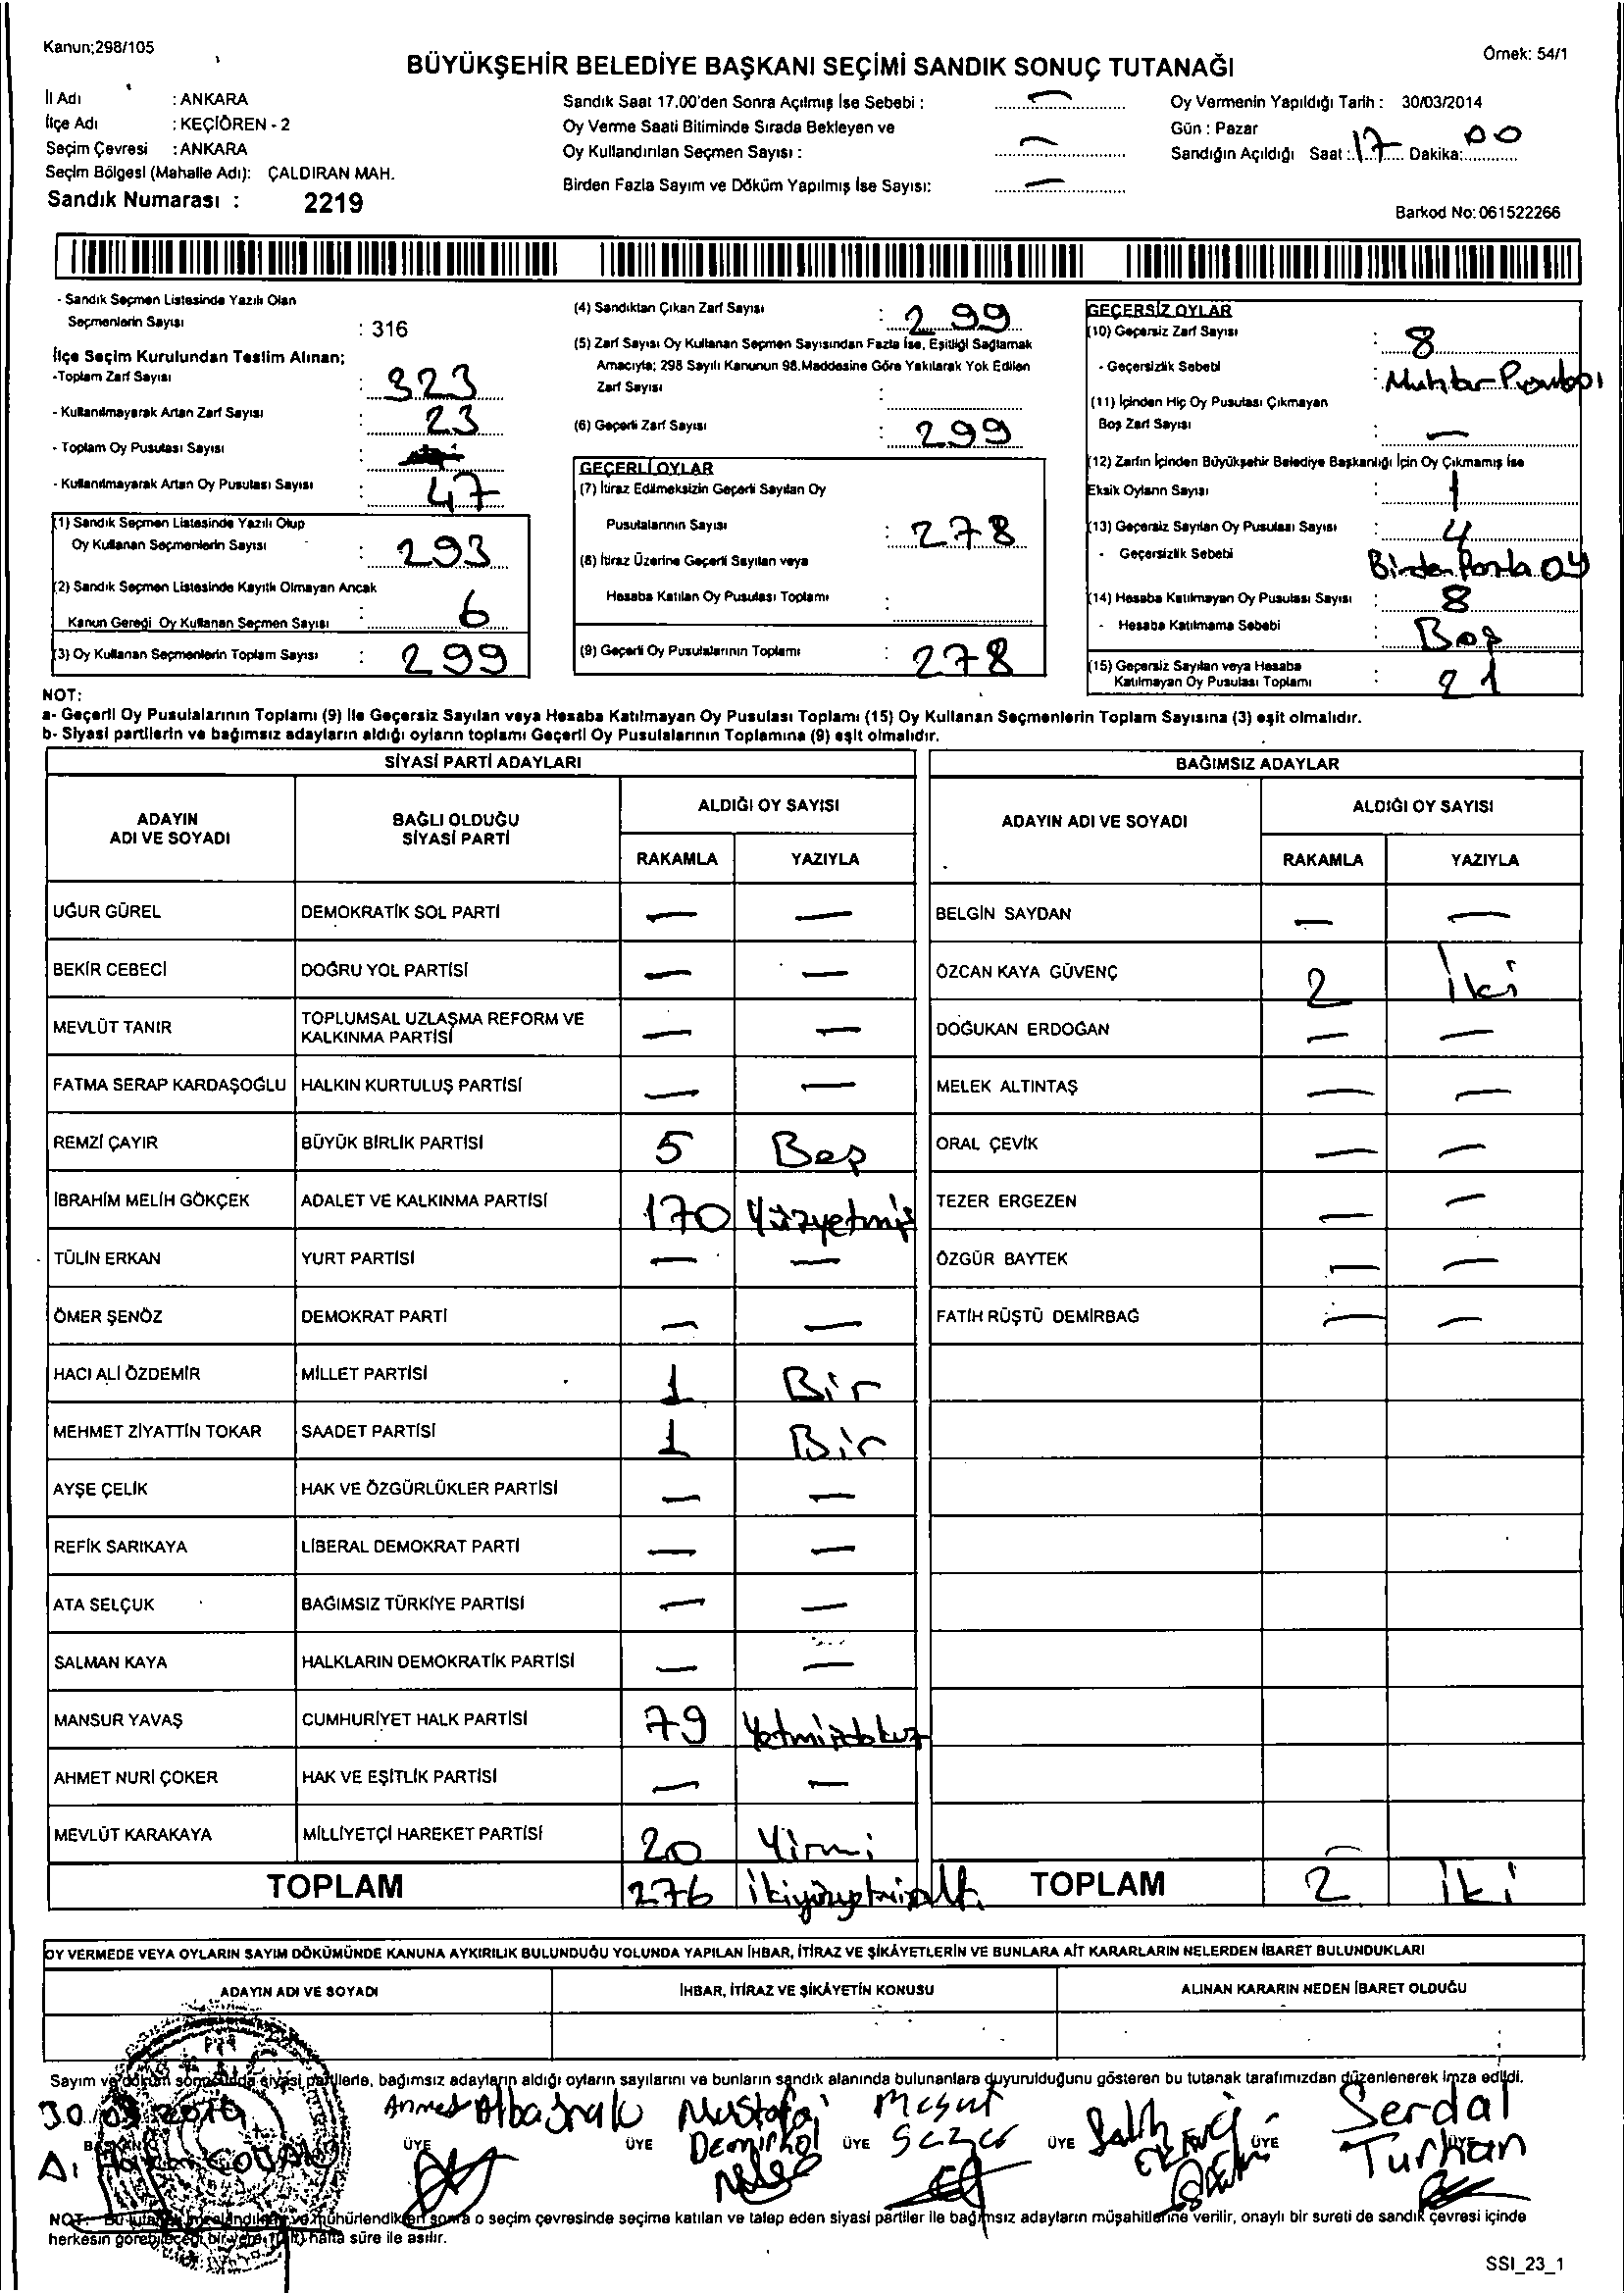 Kanun;298/105
Örnek: 54/1
BÜYÜKŞEHİR BELEDİYE BAŞKANI SEÇİMİ SANDIK SONUÇ TUTANAĞI
İl Adı : ANKARA
İlçe Adı : KEÇİÖREN - 2
Seçim Çevresi : ANKARA
Seçim Bölgesi (Mahalle Adı): ÇALDIRAN MAH.
Sandık Numarası : 2219
Sandık Saat 17.00'den Sonra Açılmış İse Sebebi : —
Oy Verme Saati Bitiminde Sırada Bekleyen ve
Oy Kullandırılan Seçmen Sayısı : —
Birden Fazla Sayım ve Döküm Yapılmış İse Sayısı: —
Oy Vermenin Yapıldığı Tarih : 30/03/2014
Gün : Pazar
Sandığın Açıldığı Saat : 17 Dakika: 00
Barkod No: 061522266
- Sandık Seçmen Listesinde Yazılı Olan
Seçmenlerin Sayısı : 316
İlçe Seçim Kurulundan Teslim Alınan;
-Toplam Zarf Sayısı : 323
- Kullanılmayarak Artan Zarf Sayısı : 23
- Toplam Oy Pusulası Sayısı :
- Kullanılmayarak Artan Oy Pusulası Sayısı : 47
(1) Sandık Seçmen Listesinde Yazılı Olup
Oy Kullanan Seçmenlerin Sayısı : 293
(2) Sandık Seçmen Listesinde Kayıtlı Olmayan Ancak
Kanun Gereği Oy Kullanan Seçmen Sayısı : 6
(3) Oy Kullanan Seçmenlerin Toplam Sayısı : 299
(4) Sandıktan Çıkan Zarf Sayısı : 299
(5) Zarf Sayısı Oy Kullanan Seçmen Sayısından Fazla İse, Eşitliği Sağlamak
Amacıyla; 298 Sayılı Kanunun 98.Maddesine Göre Yakılarak Yok Edilen
Zarf Sayısı :
(6) Geçerli Zarf Sayısı : 299
GEÇERLİ OYLAR
(7) İtiraz Edilmeksizin Geçerli Sayılan Oy
Pusulalarının Sayısı : 278
(8) İtiraz Üzerine Geçerli Sayılan veya
Hesaba Katılan Oy Pusulası Toplamı :
(9) Geçerli Oy Pusulalarının Toplamı : 278
GEÇERSİZ OYLAR
(10) Geçersiz Zarf Sayısı : 8
- Geçersizlik Sebebi : Muhtar
(11) İçinden Hiç Oy Pusulası Çıkmayan
Boş Zarf Sayısı : —
(12) Zarfın İçinden Büyükşehir Belediye Başkanlığı İçin Oy Çıkmamış İse
Eksik Oyların Sayısı : 1
(13) Geçersiz Sayılan Oy Pusulası Sayısı : 4
- Geçersizlik Sebebi Birden Fazla OY
(14) Hesaba Katılmayan Oy Pusulası Sayısı : 8
- Hesaba Katılmama Sebebi : Boş
(15) Geçersiz Sayılan veya Hesaba
Katılmayan Oy Pusulası Toplamı : 21
NOT:
a- Geçerli Oy Pusulalarının Toplamı (9) ile Geçersiz Sayılan veya Hesaba Katılmayan Oy Pusulası Toplamı (15) Oy Kullanan Seçmenlerin Toplam Sayısına (3) eşit olmalıdır.
b- Siyasi partilerin ve bağımsız adayların aldığı oyların toplamı Geçerli Oy Pusulalarının Toplamına (9) eşit olmalıdır.
SİYASİ PARTİ ADAYLARI
ADAYIN
ADI VE SOYADI
BAĞLI OLDUĞU
SİYASİ PARTİ
ALDIĞI OY SAYISI
RAKAMLA YAZIYLA
UĞUR GÜREL DEMOKRATİK SOL PARTİ — —
BEKİR CEBECİ DOĞRU YOL PARTİSİ — —
MEVLÜT TANIR TOPLUMSAL UZLAŞMA REFORM VE
KALKINMA PARTİSİ — —
FATMA SERAP KARDAŞOĞLU HALKIN KURTULUŞ PARTİSİ — —
REMZİ ÇAYIR BÜYÜK BİRLİK PARTİSİ 5 Beş
İBRAHİM MELİH GÖKÇEK ADALET VE KALKINMA PARTİSİ 170 Yüzyetmiş
TÜLİN ERKAN YURT PARTİSİ — —
ÖMER ŞENÖZ DEMOKRAT PARTİ — —
HACI ALİ ÖZDEMİR MİLLET PARTİSİ 1 Bir
MEHMET ZİYATTİN TOKAR SAADET PARTİSİ 1 Bir
AYŞE ÇELİK HAK VE ÖZGÜRLÜKLER PARTİSİ — —
REFİK SARIKAYA LİBERAL DEMOKRAT PARTİ — —
ATA SELÇUK BAĞIMSIZ TÜRKİYE PARTİSİ — —
SALMAN KAYA HALKLARIN DEMOKRATİK PARTİSİ — —
MANSUR YAVAŞ CUMHURİYET HALK PARTİSİ 79 Yetmişdokuz
AHMET NURİ ÇOKER HAK VE EŞİTLİK PARTİSİ — —
MEVLÜT KARAKAYA MİLLİYETÇİ HAREKET PARTİSİ 20 Yirmi
TOPLAM 276 İkiyüzyetmişaltı
BAĞIMSIZ ADAYLAR
ADAYIN ADI VE SOYADI
ALDIĞI OY SAYISI
RAKAMLA YAZIYLA
BELGİN SAYDAN — —
ÖZCAN KAYA GÜVENÇ 2 İki
DOĞUKAN ERDOĞAN — —
MELEK ALTINTAŞ — —
ORAL ÇEVİK — —
TEZER ERGEZEN — —
ÖZGÜR BAYTEK — —
FATİH RÜŞTÜ DEMİRBAĞ — —
TOPLAM 2 İki
OY VERMEDE VEYA OYLARIN SAYIM DÖKÜMÜNDE KANUNA AYKIRILIK BULUNDUĞU YOLUNDA YAPILAN İHBAR, İTİRAZ VE ŞİKÂYETLERİN VE BUNLARA AİT KARARLARIN NELERDEN İBARET BULUNDUKLARI
ADAYIN ADI VE SOYADI İHBAR, İTİRAZ VE ŞİKÂYETİN KONUSU ALINAN KARARIN NEDEN İBARET OLDUĞU
Sayım ve döküm sonucunda siyasi partilerle, bağımsız adayların aldığı oyların sayılarını ve bunların sandık alanında bulunanlara duyurulduğunu gösteren bu tutanak tarafımızdan düzenlenerek imza edildi.
30/03/2014
BAŞKAN
Ahmet Albayrak ÜYE
Mustafa Demirkol ÜYE
Mesut Sezer ÜYE
Salih ÜYE
Serdal Turkan ÜYE
NOT: Bu tutanak imzalandıktan ve mühürlendikten sonra o seçim çevresinde seçime katılan ve talep eden siyasi partiler ile bağımsız adayların müşahitlerine verilir, onaylı bir sureti de sandık çevresi içinde
herkesin görebileceği bir yere (1) hafta süre ile asılır.
SSI_23_1